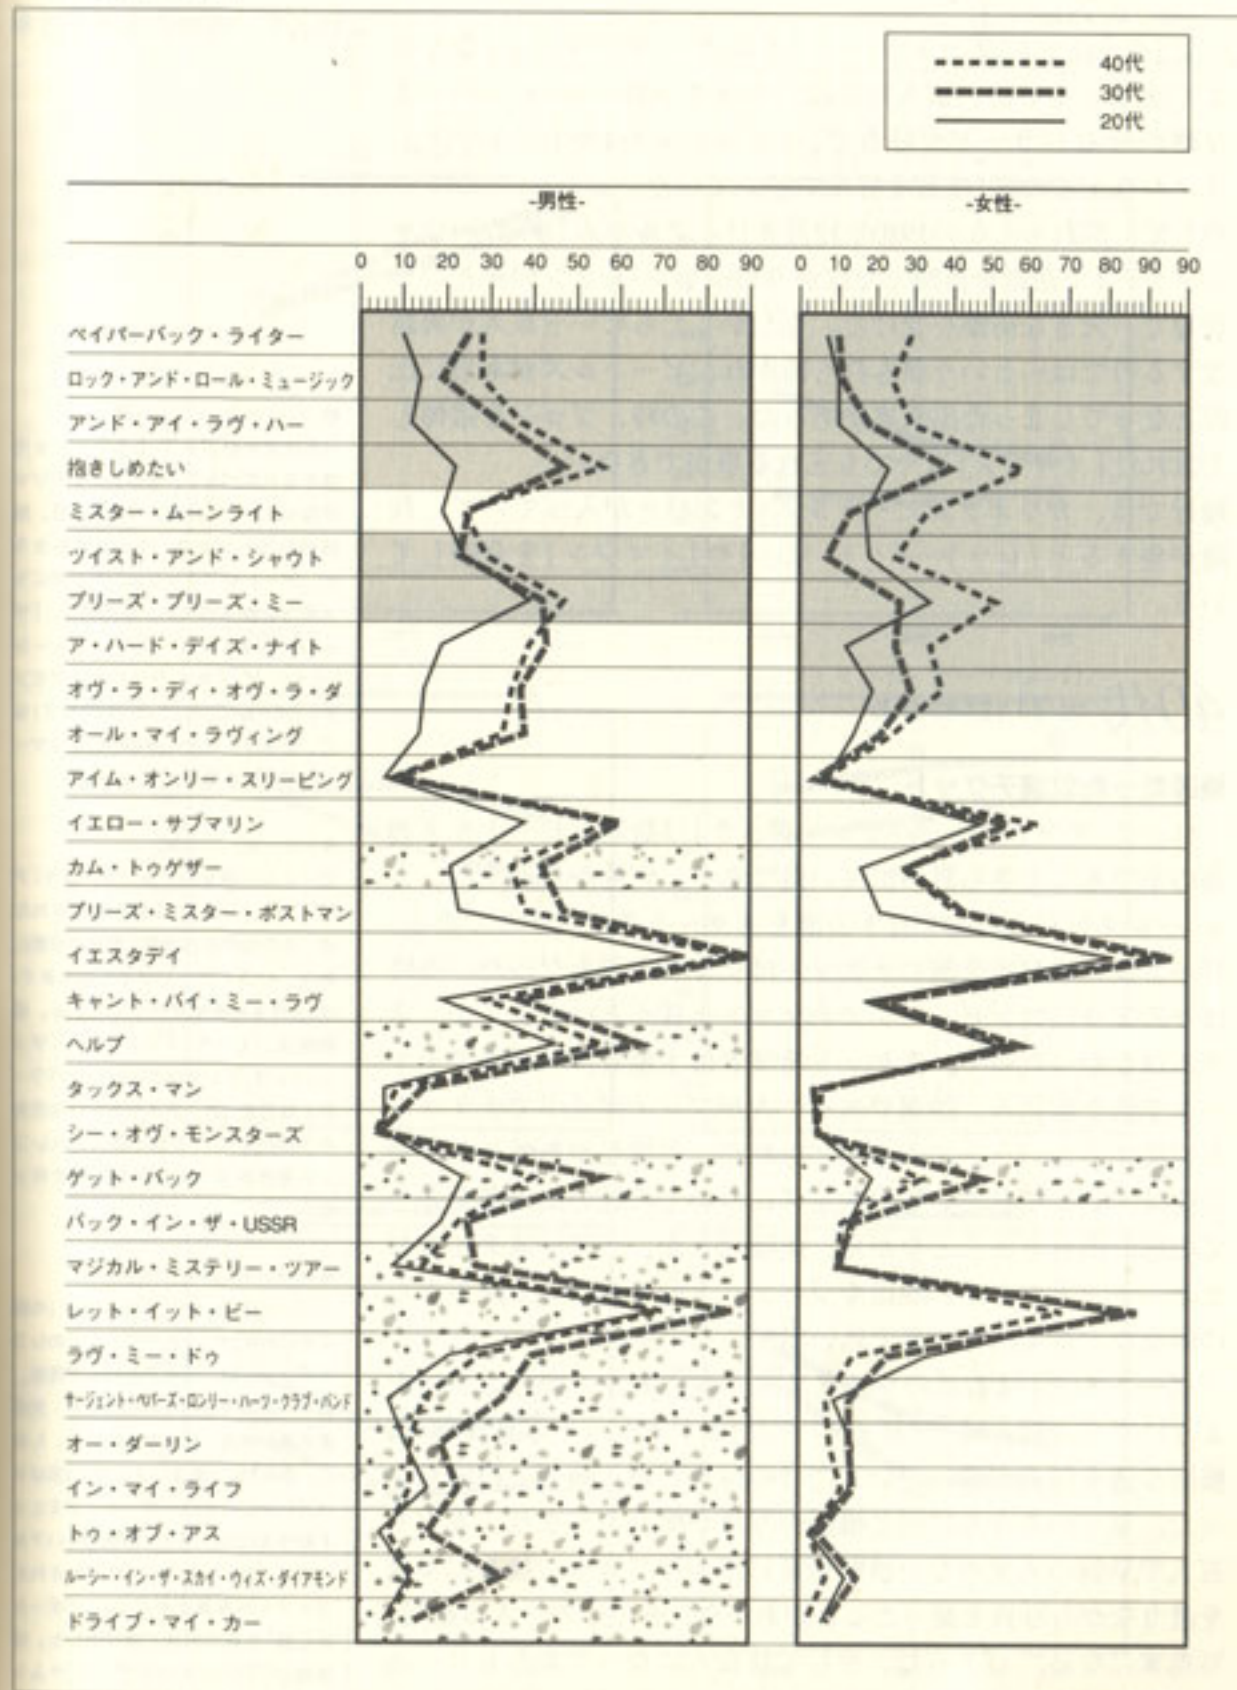 40代
30代
20代
-男性- -女性-
0 10 20 30 40 50 60 70 80 90 0 10 20 30 40 50 60 70 80 90 90
ペイパーバック・ライター
ロック・アンド・ロール・ミュージック
アンド・アイ・ラヴ・ハー
抱きしめたい
ミスター・ムーンライト
ツイスト・アンド・シャウト
プリーズ・プリーズ・ミー
ア・ハード・デイズ・ナイト
オヴ・ラ・ディ・オヴ・ラ・ダ
オール・マイ・ラヴィング
アイム・オンリー・スリーピング
イエロー・サブマリン
カム・トゥゲザー
プリーズ・ミスター・ポストマン
イエスタデイ
キャント・バイ・ミー・ラヴ
ヘルプ
タックス・マン
シー・オヴ・モンスターズ
ゲット・バック
バック・イン・ザ・USSR
マジカル・ミステリー・ツアー
レット・イット・ビー
ラヴ・ミー・ドゥ
サージェント・ペパーズ・ロンリー・ハーツ・クラブ・バンド
オー・ダーリン
イン・マイ・ライフ
トゥ・オブ・アス
ルーシー・イン・ザ・スカイ・ウィズ・ダイアモンド
ドライブ・マイ・カー